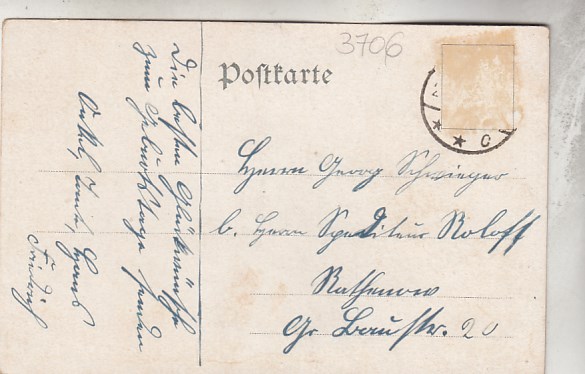 3706
Postkarte
Die besten Glückwünsche
zum Geburtstage senden
Onkel, Tante, Hans
Friedrich
Herrn Georg Schwieger
b. Herrn Spediteur Roloff
Rathenow
Gr Baustr. 20
* * C